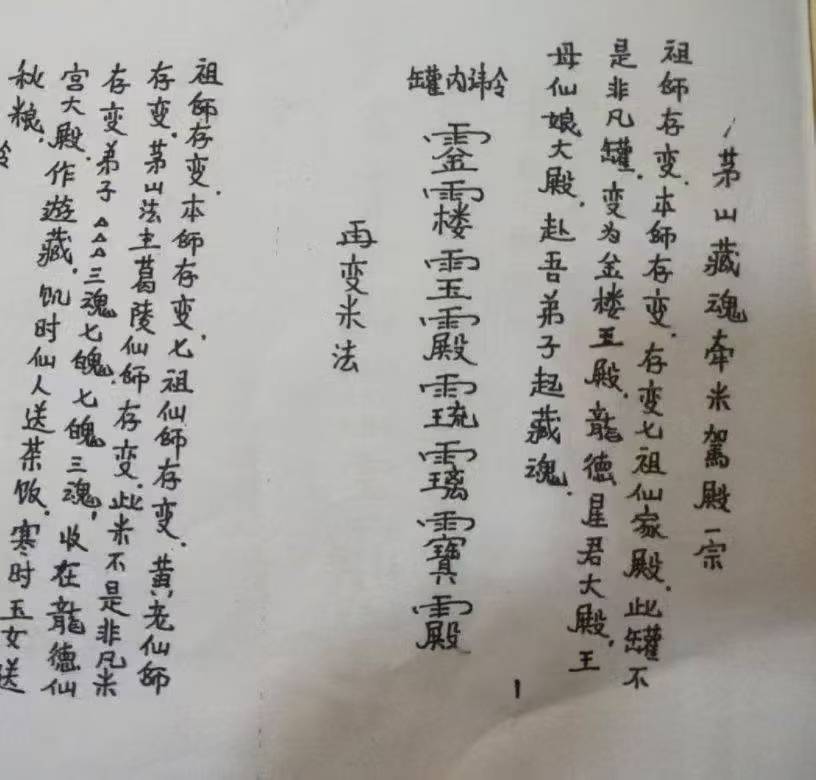 茅山藏魂牵米駕殿一宗
祖师存变.本师存变.存变七祖仙家殿.此罐不
是非凡罐.变为金楼玉殿.龍德星君大殿,王
母仙娘大殿.赴吾弟子起藏魂.
罐内讳令
再变米法
祖师存变.本师存变,七祖仙师存变.黄老仙师
存变.茅山法主葛陵仙师存变.此米不是非凡米
存变弟子△△△三魂七魄.七魄三魂,收在龍德仙
宫大殿.作遊藏.饥时仙人送茶饭.寒时玉女送
秋粮.
1